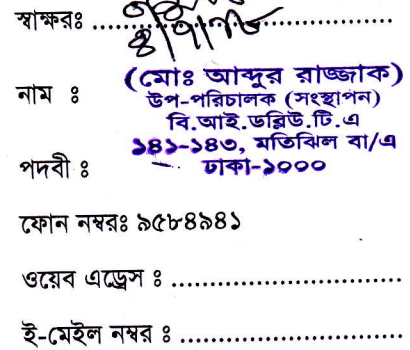 স্বাক্ষরঃ ........................................
(মোঃ আব্দুর রাজ্জাক)
নাম ঃ উপ-পরিচালক (সংস্থাপন)
বি.আই.ডব্লিউ.টি.এ
১৪১-১৪৩, মতিঝিল বা/এ
পদবী ঃ ঢাকা-১০০০
ফোন নম্বরঃ ৯৫৮৪৯৪১
ওয়েব এড্রেস ঃ ..............................
ই-মেইল নম্বর ঃ ..............................